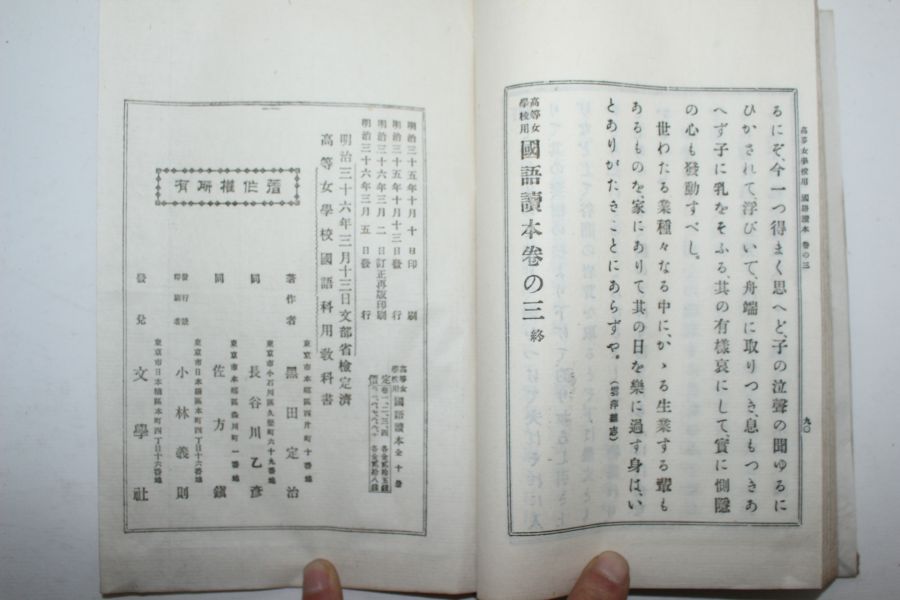 高等女學校用 國語讀本 卷の三
九〇
るにぞ、今一つ得まく思へど、子の泣聲の聞ゆるに
ひかされて、浮びいて、舟端に取りつき、息もつきあ
へず子に乳をそふる、其の有樣哀にして實に惻隱
の心も發動すべし。
世わたる業種々なる中に、かゝる生業する輩も
あるものを家にありて其の日を樂に過す身は、い
とありがたきことにあらずや。(雲萍雜志)
高等女學校用 國語讀本卷の三 終
明治三十五年十月十日印刷
明治三十五年十月十三日發行
明治三十六年三月二日訂正再版印刷
明治三十六年三月五日發行
高等女學校用 國語讀本全十册
定價
明治三十六年三月十三日文部省檢定濟
高等女學校國語科用敎科書
著作權所有
著作者
東京市本鄕區西片町十番地
黑田定治
同
東京市小石川區久堅町六十九番地
長谷川乙彥
同
東京市本鄕區町一番地
佐方鎭
發行兼印刷者
東京市日本橋區本町四丁目十六番地
小林義則
發兌
東京市日本橋區本町四丁目十六番地
文學社